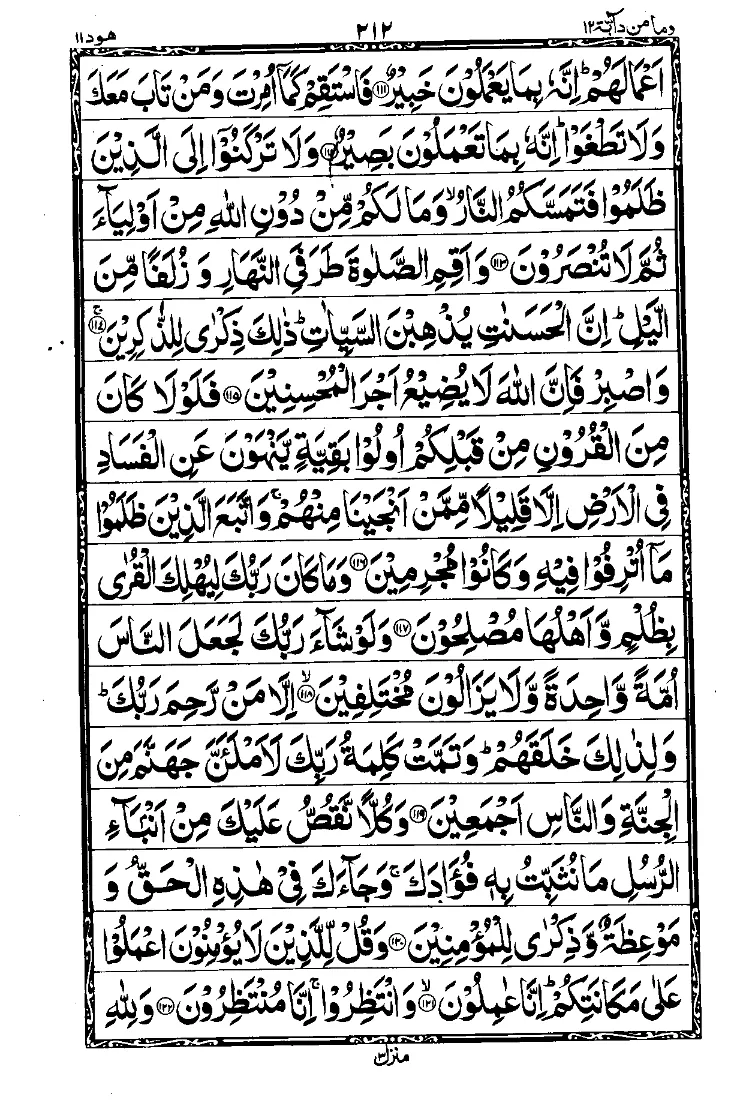 وما من دآبة ١٢ ٢١٢ هود ١١
اَعْمَالَهُمْ ؕ اِنَّهٗ بِمَا يَعْمَلُوْنَ خَبِيْرٌ ﴿۱۱۱﴾ فَاسْتَقِمْ كَمَاۤ اُمِرْتَ وَمَنْ تَابَ مَعَكَ
وَلَا تَطْغَوْا ؕ اِنَّهٗ بِمَا تَعْمَلُوْنَ بَصِيْرٌ ﴿۱۱۲﴾ وَلَا تَرْكَنُوْۤا اِلَى الَّذِيْنَ
ظَلَمُوْا فَتَمَسَّكُمُ النَّارُ ۙ وَمَا لَكُمْ مِّنْ دُوْنِ اللّٰهِ مِنْ اَوْلِيَآءَ
ثُمَّ لَا تُنْصَرُوْنَ ﴿۱۱۳﴾ وَاَقِمِ الصَّلٰوةَ طَرَفَىِ النَّهَارِ وَ زُلَفًا مِّنَ
الَّيْلِ ؕ اِنَّ الْحَسَنٰتِ يُذْهِبْنَ السَّيِّاٰتِ ؕ ذٰلِكَ ذِكْرٰى لِلذّٰكِرِيْنَ ﴿۱۱۴﴾ ۚ
وَاصْبِرْ فَاِنَّ اللّٰهَ لَا يُضِيْعُ اَجْرَ الْمُحْسِنِيْنَ ﴿۱۱۵﴾ فَلَوْ لَا كَانَ
مِنَ الْقُرُوْنِ مِنْ قَبْلِكُمْ اُولُوْا بَقِيَّةٍ يَّنْهَوْنَ عَنِ الْفَسَادِ
فِى الْاَرْضِ اِلَّا قَلِيْلًا مِّمَّنْ اَنْجَيْنَا مِنْهُمْ ۚ وَاتَّبَعَ الَّذِيْنَ ظَلَمُوْا
مَاۤ اُتْرِفُوْا فِيْهِ وَكَانُوْا مُجْرِمِيْنَ ﴿۱۱۶﴾ وَمَا كَانَ رَبُّكَ لِيُهْلِكَ الْقُرٰى
بِظُلْمٍ وَّاَهْلُهَا مُصْلِحُوْنَ ﴿۱۱۷﴾ وَلَوْ شَآءَ رَبُّكَ لَجَعَلَ النَّاسَ
اُمَّةً وَّاحِدَةً وَّلَا يَزَالُوْنَ مُخْتَلِفِيْنَ ﴿۱۱۸﴾ ۙ اِلَّا مَنْ رَّحِمَ رَبُّكَ ؕ
وَلِذٰلِكَ خَلَقَهُمْ ؕ وَتَمَّتْ كَلِمَةُ رَبِّكَ لَاَمْلَئَنَّ جَهَنَّمَ مِنَ
الْجِنَّةِ وَالنَّاسِ اَجْمَعِيْنَ ﴿۱۱۹﴾ وَكُلًّا نَّقُصُّ عَلَيْكَ مِنْ اَنْۢبَآءِ
الرُّسُلِ مَا نُثَبِّتُ بِهٖ فُؤَادَكَ ۚ وَجَآءَكَ فِىْ هٰذِهِ الْحَقُّ وَ
مَوْعِظَةٌ وَّذِكْرٰى لِلْمُؤْمِنِيْنَ ﴿۱۲۰﴾ وَقُلْ لِّلَّذِيْنَ لَا يُؤْمِنُوْنَ اعْمَلُوْا
عَلٰى مَكَانَتِكُمْ ؕ اِنَّا عٰمِلُوْنَ ﴿۱۲۱﴾ ۙ وَانْتَظِرُوْا ۚ اِنَّا مُنْتَظِرُوْنَ ﴿۱۲۲﴾ وَلِلّٰهِ
منزل ٣